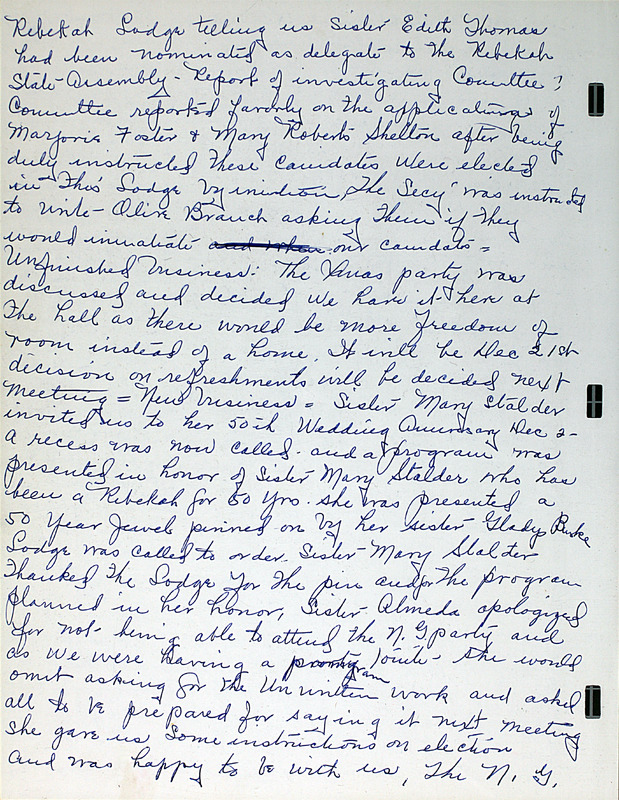 Rebekah Lodge telling us Sister Edith Thomas
had been nominated as delegate to the Rebekah
State Assembly - Report of investigating Comittee?
Comittee reported favorly on the applications of
Marjorie Foster & Mary Roberts Shelton after being
duly instructed these candates were elected
in This Lodge by The Secy was instructed
to write Olive Branch asking them if they
would innatiate and when our candats =
Unfinished business: The Xmas party was
discussed and decided we have it here at
the hall as there would be more freedom of
room instead of a home. It will be Dec 21st
decision on refreshments will be decided next
Meeting = New Business = Sister Mary Stalder
invited us to her 50th Wedding Dec 2-
a recess was now called. and a program was
presented in honor of Sister Mary Stalder who has
been a Rebekah for 50 yrs. she was presented a
50 Year Jewel pinned on by her sister Gladys Burke
Lodge was called to order. Sister Mary Stalder
thanked the Lodge for the pin and for the program
planned in her honor, Sister Almeda apologized
for not being able to attend the N.G party and
as we were having a program tonite - she would
omit asking for the Unwritten work and asked
all to be prepared for saying it next meeting
she gave us some instructions on election
and was happy to be with us, The N. G.